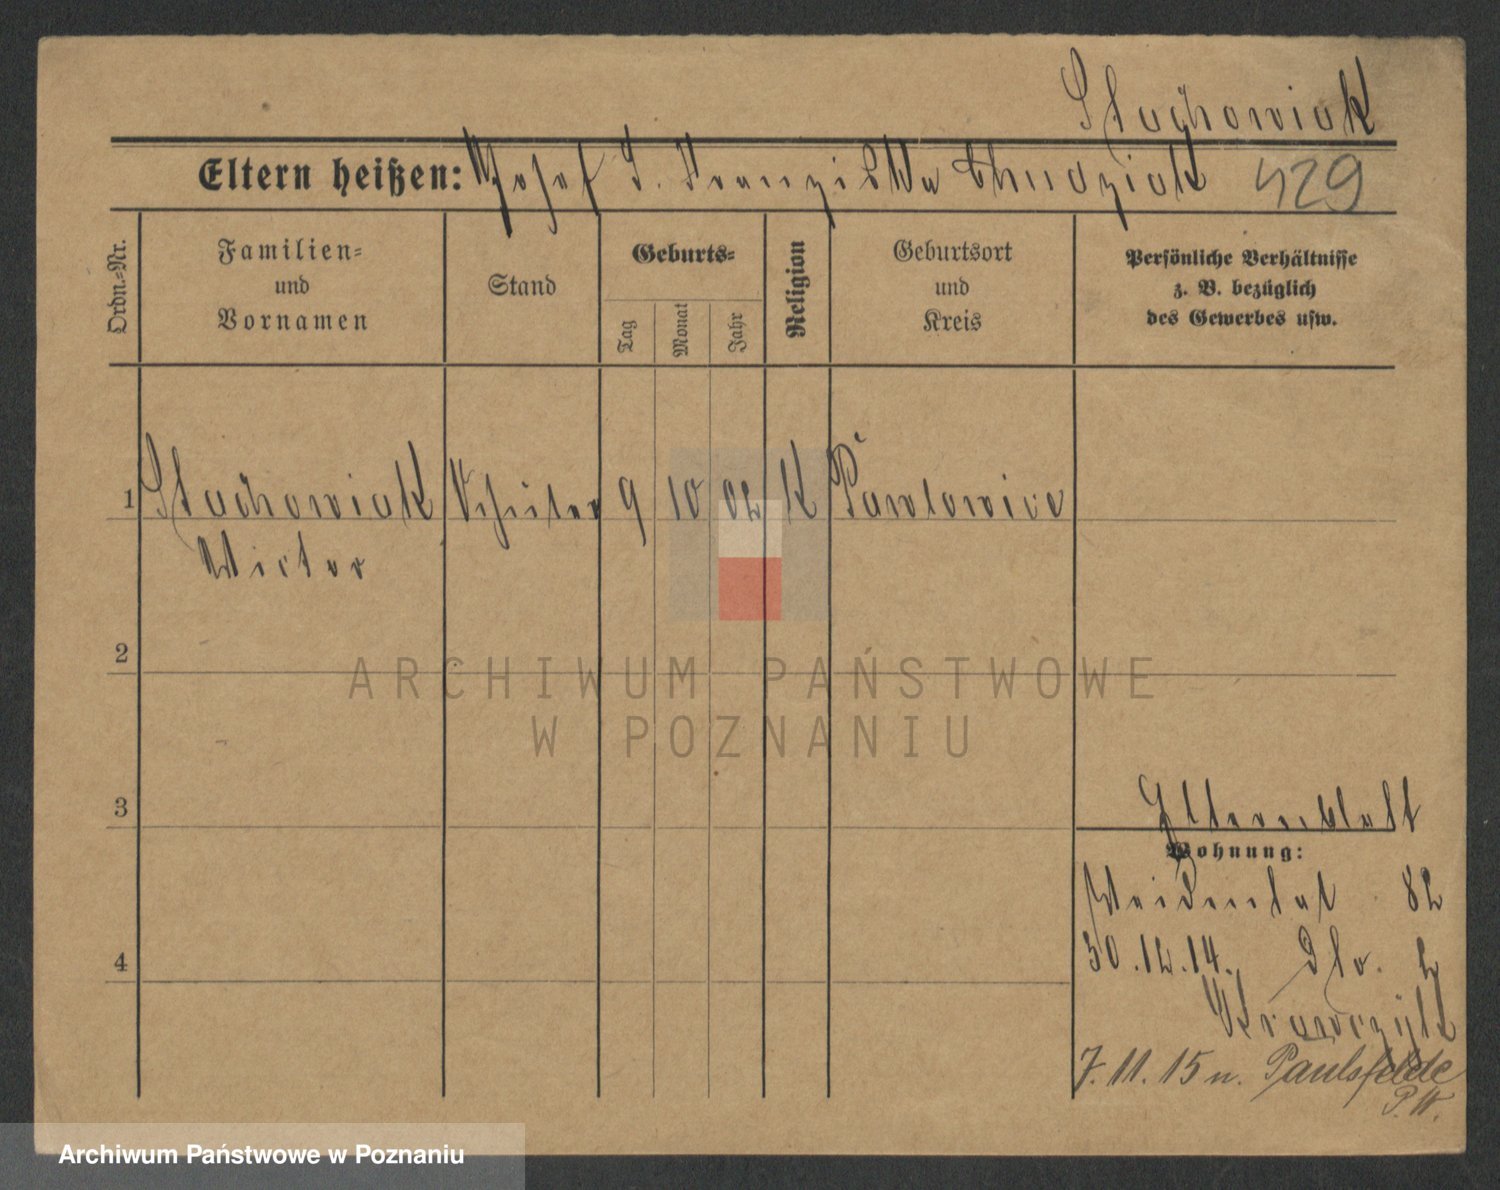 Stachowiak
Eltern heißen: Josef J. Franziska Chudziak 429
Ordn.=Nr.
Familien=
und
Vornamen
Stand
Geburts=
Tag
Monat
Jahr
Religion
Geburtsort
und
Kreis
Persönliche Verhältnisse
z. B. bezüglich
des Gewerbes usw.
1 Stachowiak Schüler 9 10 02 K Pawlowice
Victor
2
3
4
Elternblatt
Wohnung:
Weidental 82
30.12.14.
Krawczyk
7. 11. 15 n. Paulsfelde
P. W.
ARCHIWUM PAŃSTWOWE
W POZNANIU
Archiwum Państwowe w Poznaniu